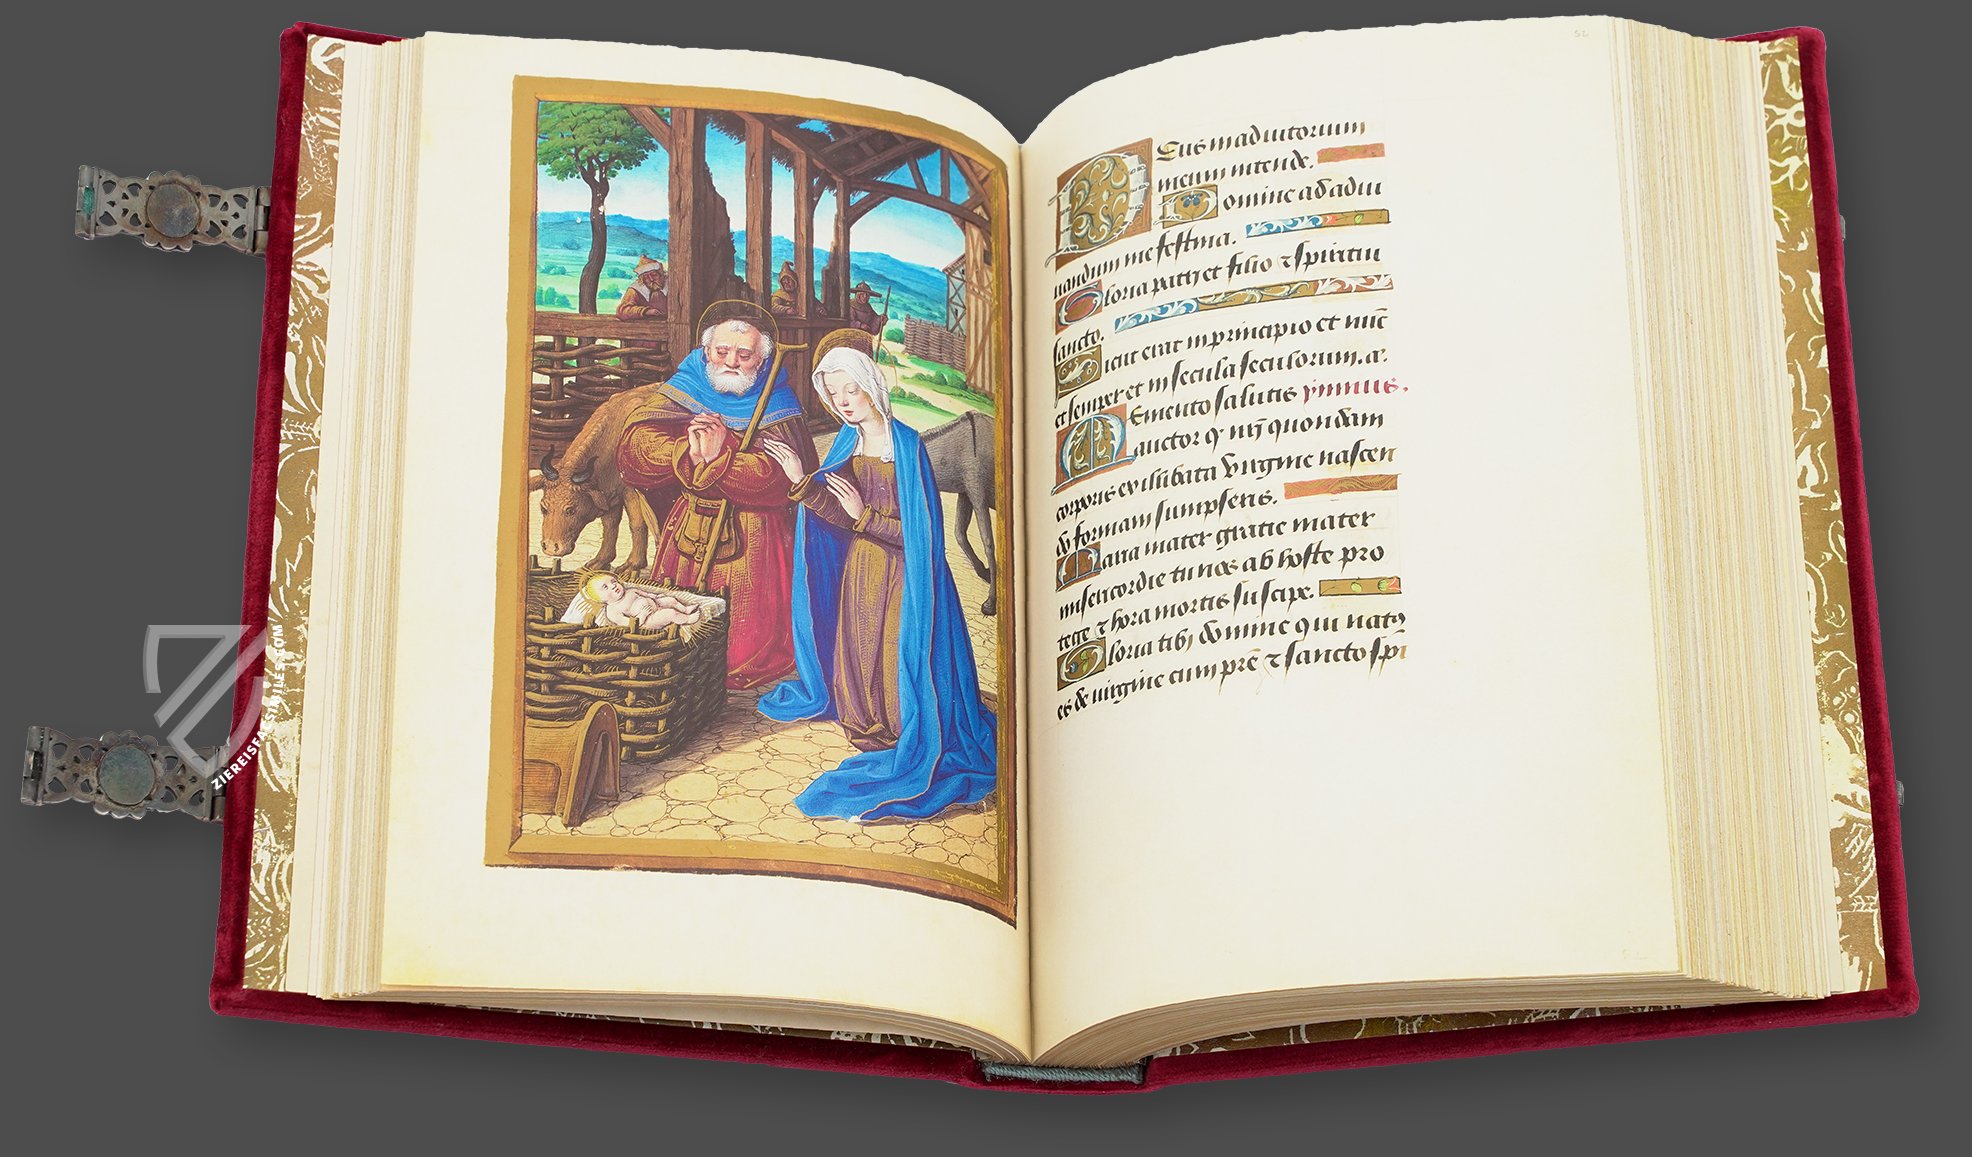 52
Deus in adiutorium
meum intende.
Domine ad adiu
uandum me festina.
Gloria patri et filio ⁊ spiritui
sancto.
Sicut erat in principio et nūc
et semper et in secula seculorum. a.
Memento salutis ymnus.
auctor q nr̄j quondam
corporis ex illibata virgine nascen
do formam sumpseris.
Maria mater gratie mater
misericordie tu nos ab hoste pro
tege ⁊ hora mortis suscipe.
Gloria tibi domine qui natꝰ
es de uirgine cum prē ⁊ sancto sp̄i
ZIEREISFACSIMILES.COM